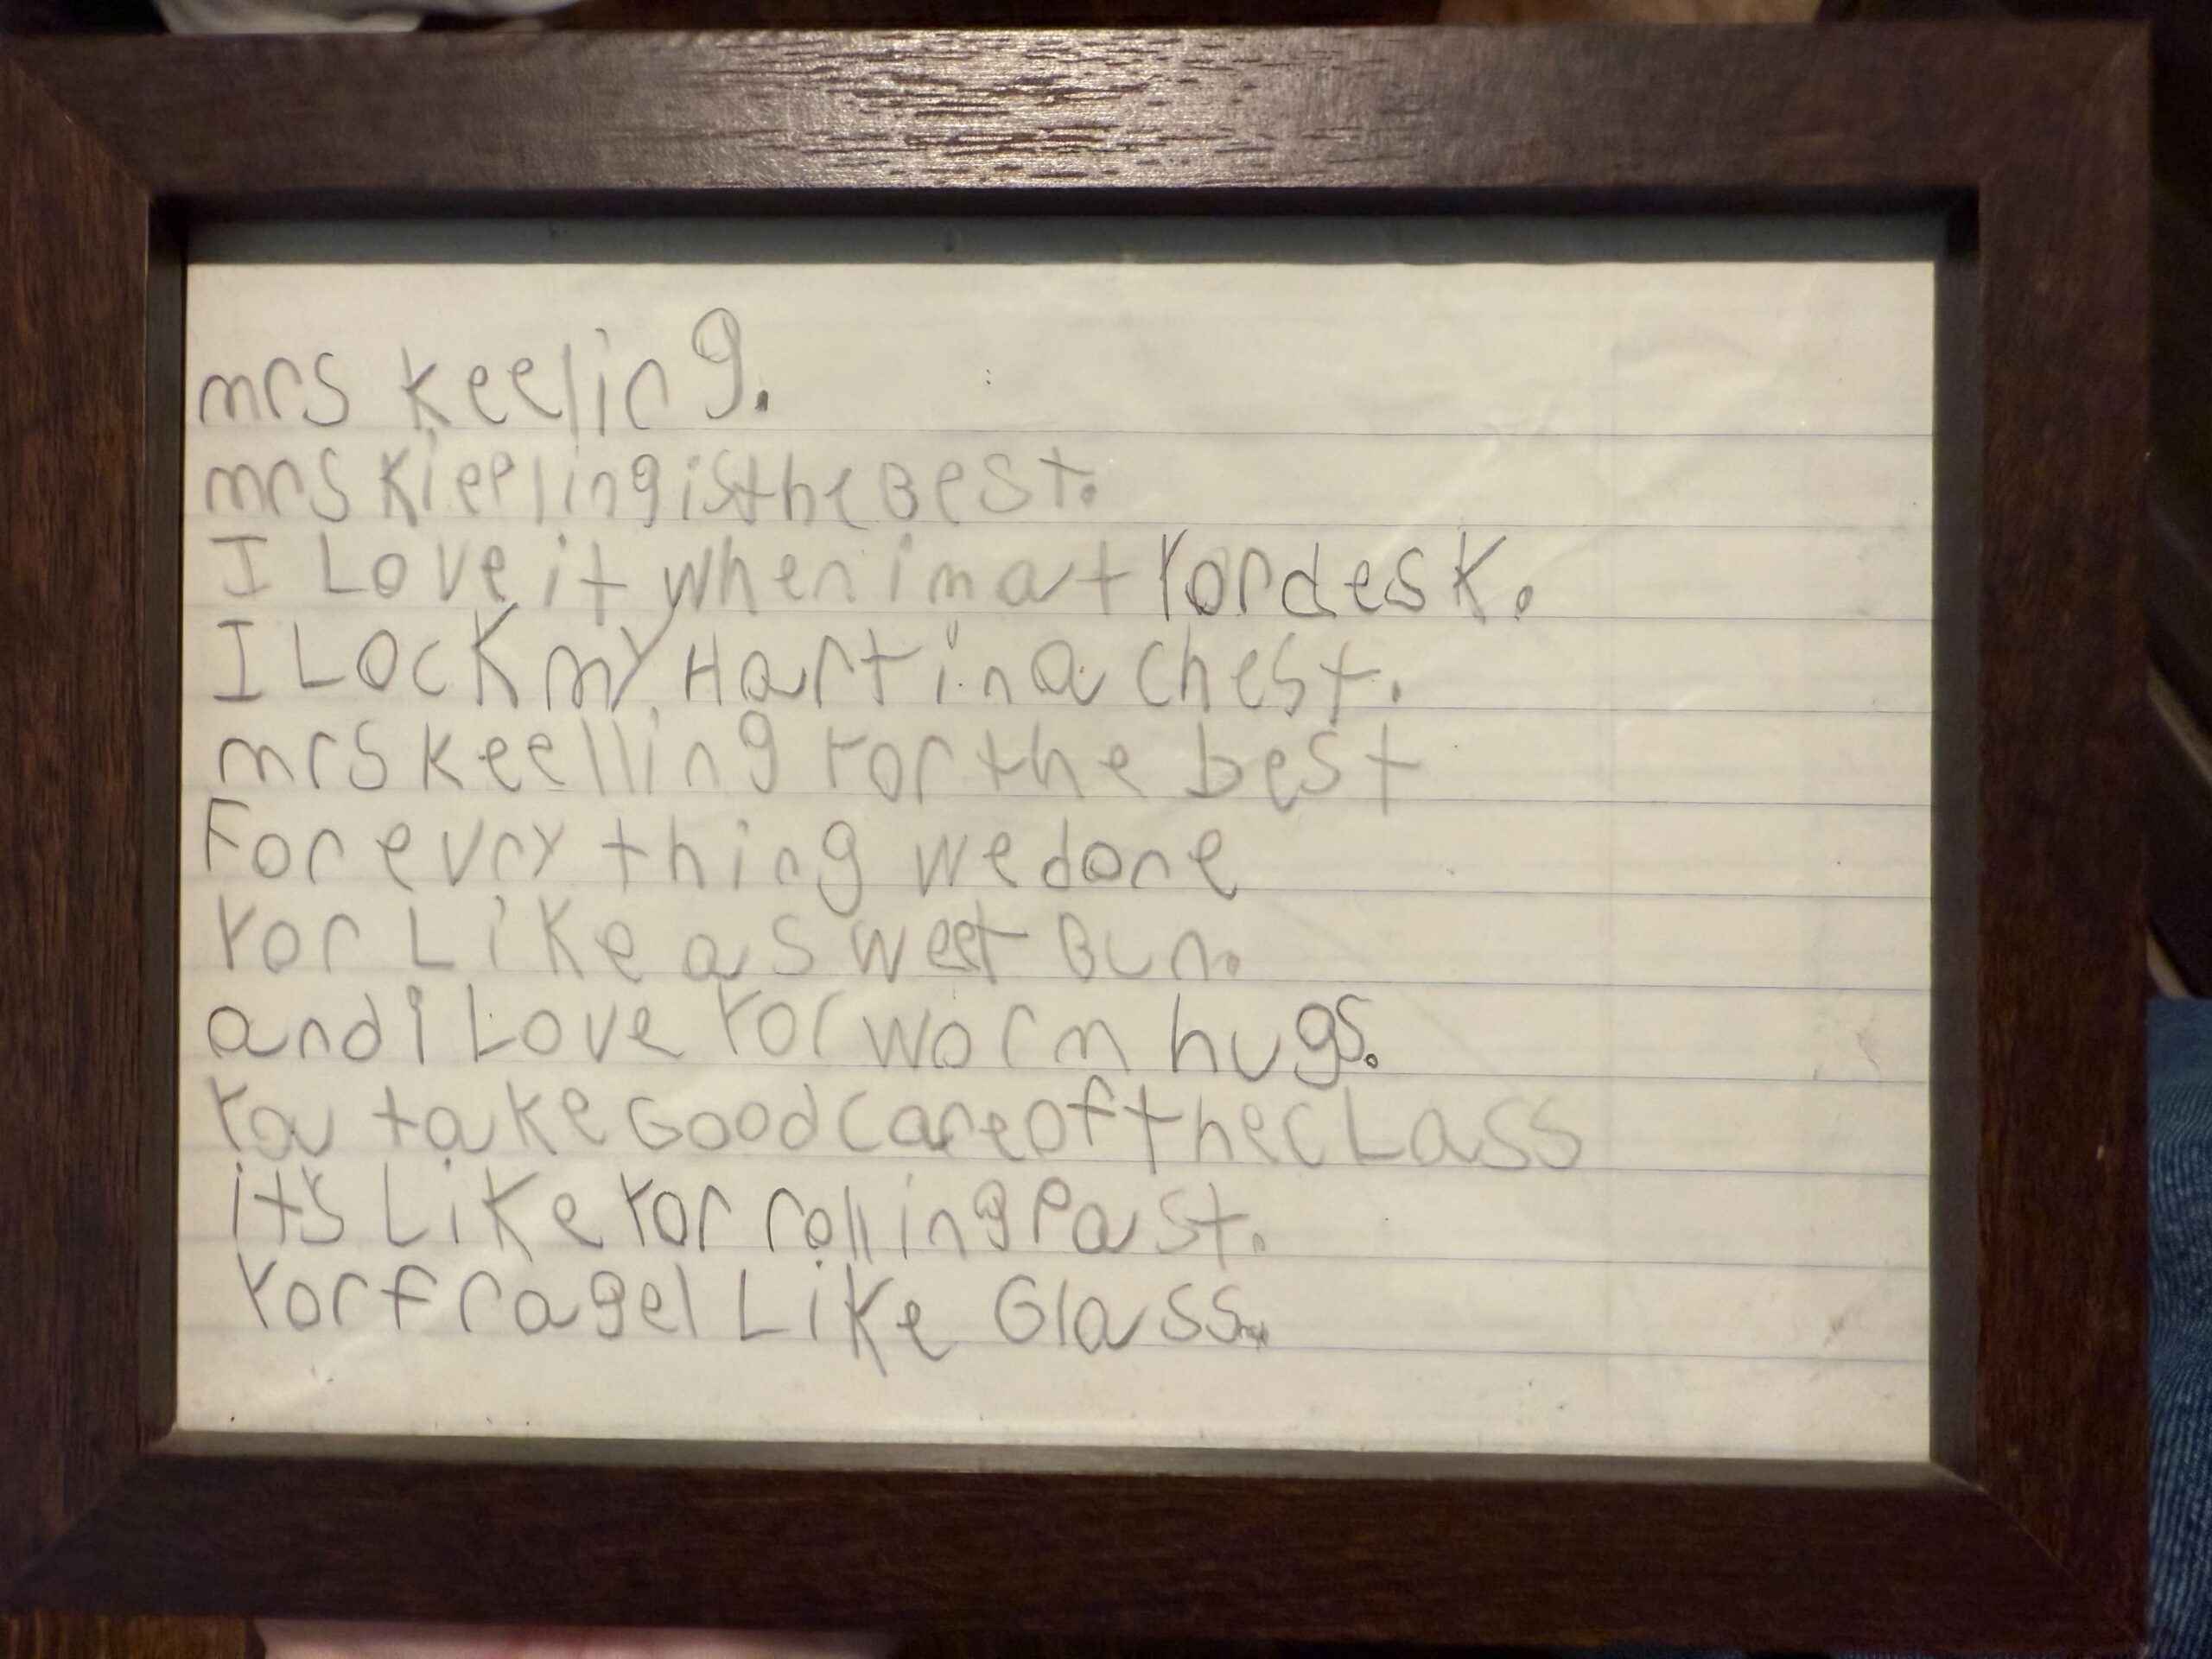 mrs keeling.
mrs Kieeling is the Best.
I Love it when im at Yor desk.
I Lock my Hart in a chest.
mrs keelling Yor the best
For evry thing we done
Yor Like a sweet Bun.
and i Love Yor worm hugs.
You take Good care of the cLass
it's Like Yor rolling Past.
Yor fragel Like Glass.